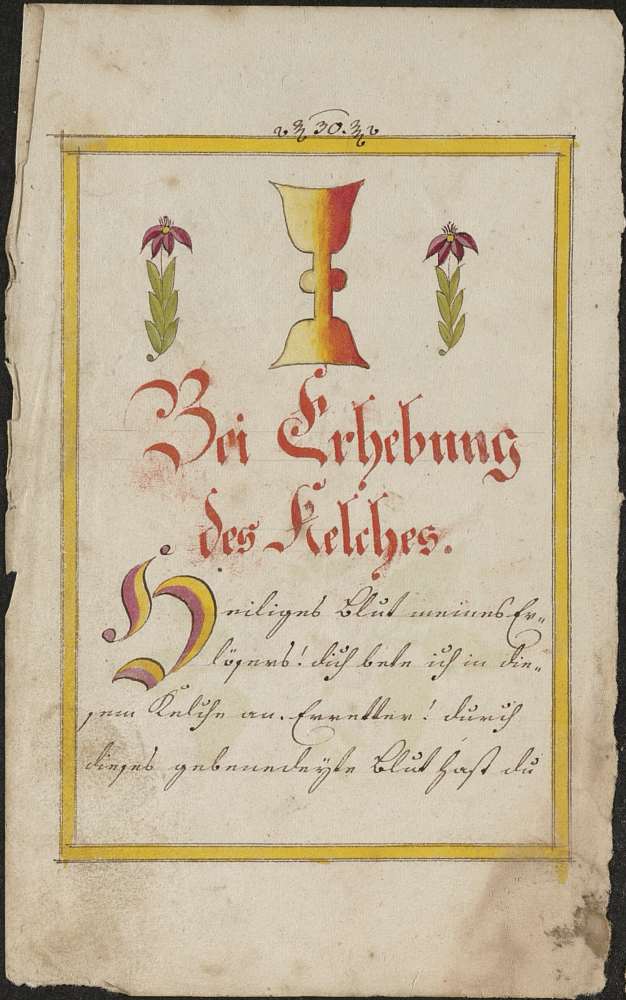 30.
Bei Erhebung
des Kelches.
Heiliges Blut meines Er„
lösers! dich bete ich in die„
sem Kelche an. Erretter! durch
dieses gebenedeyte Blut hast du